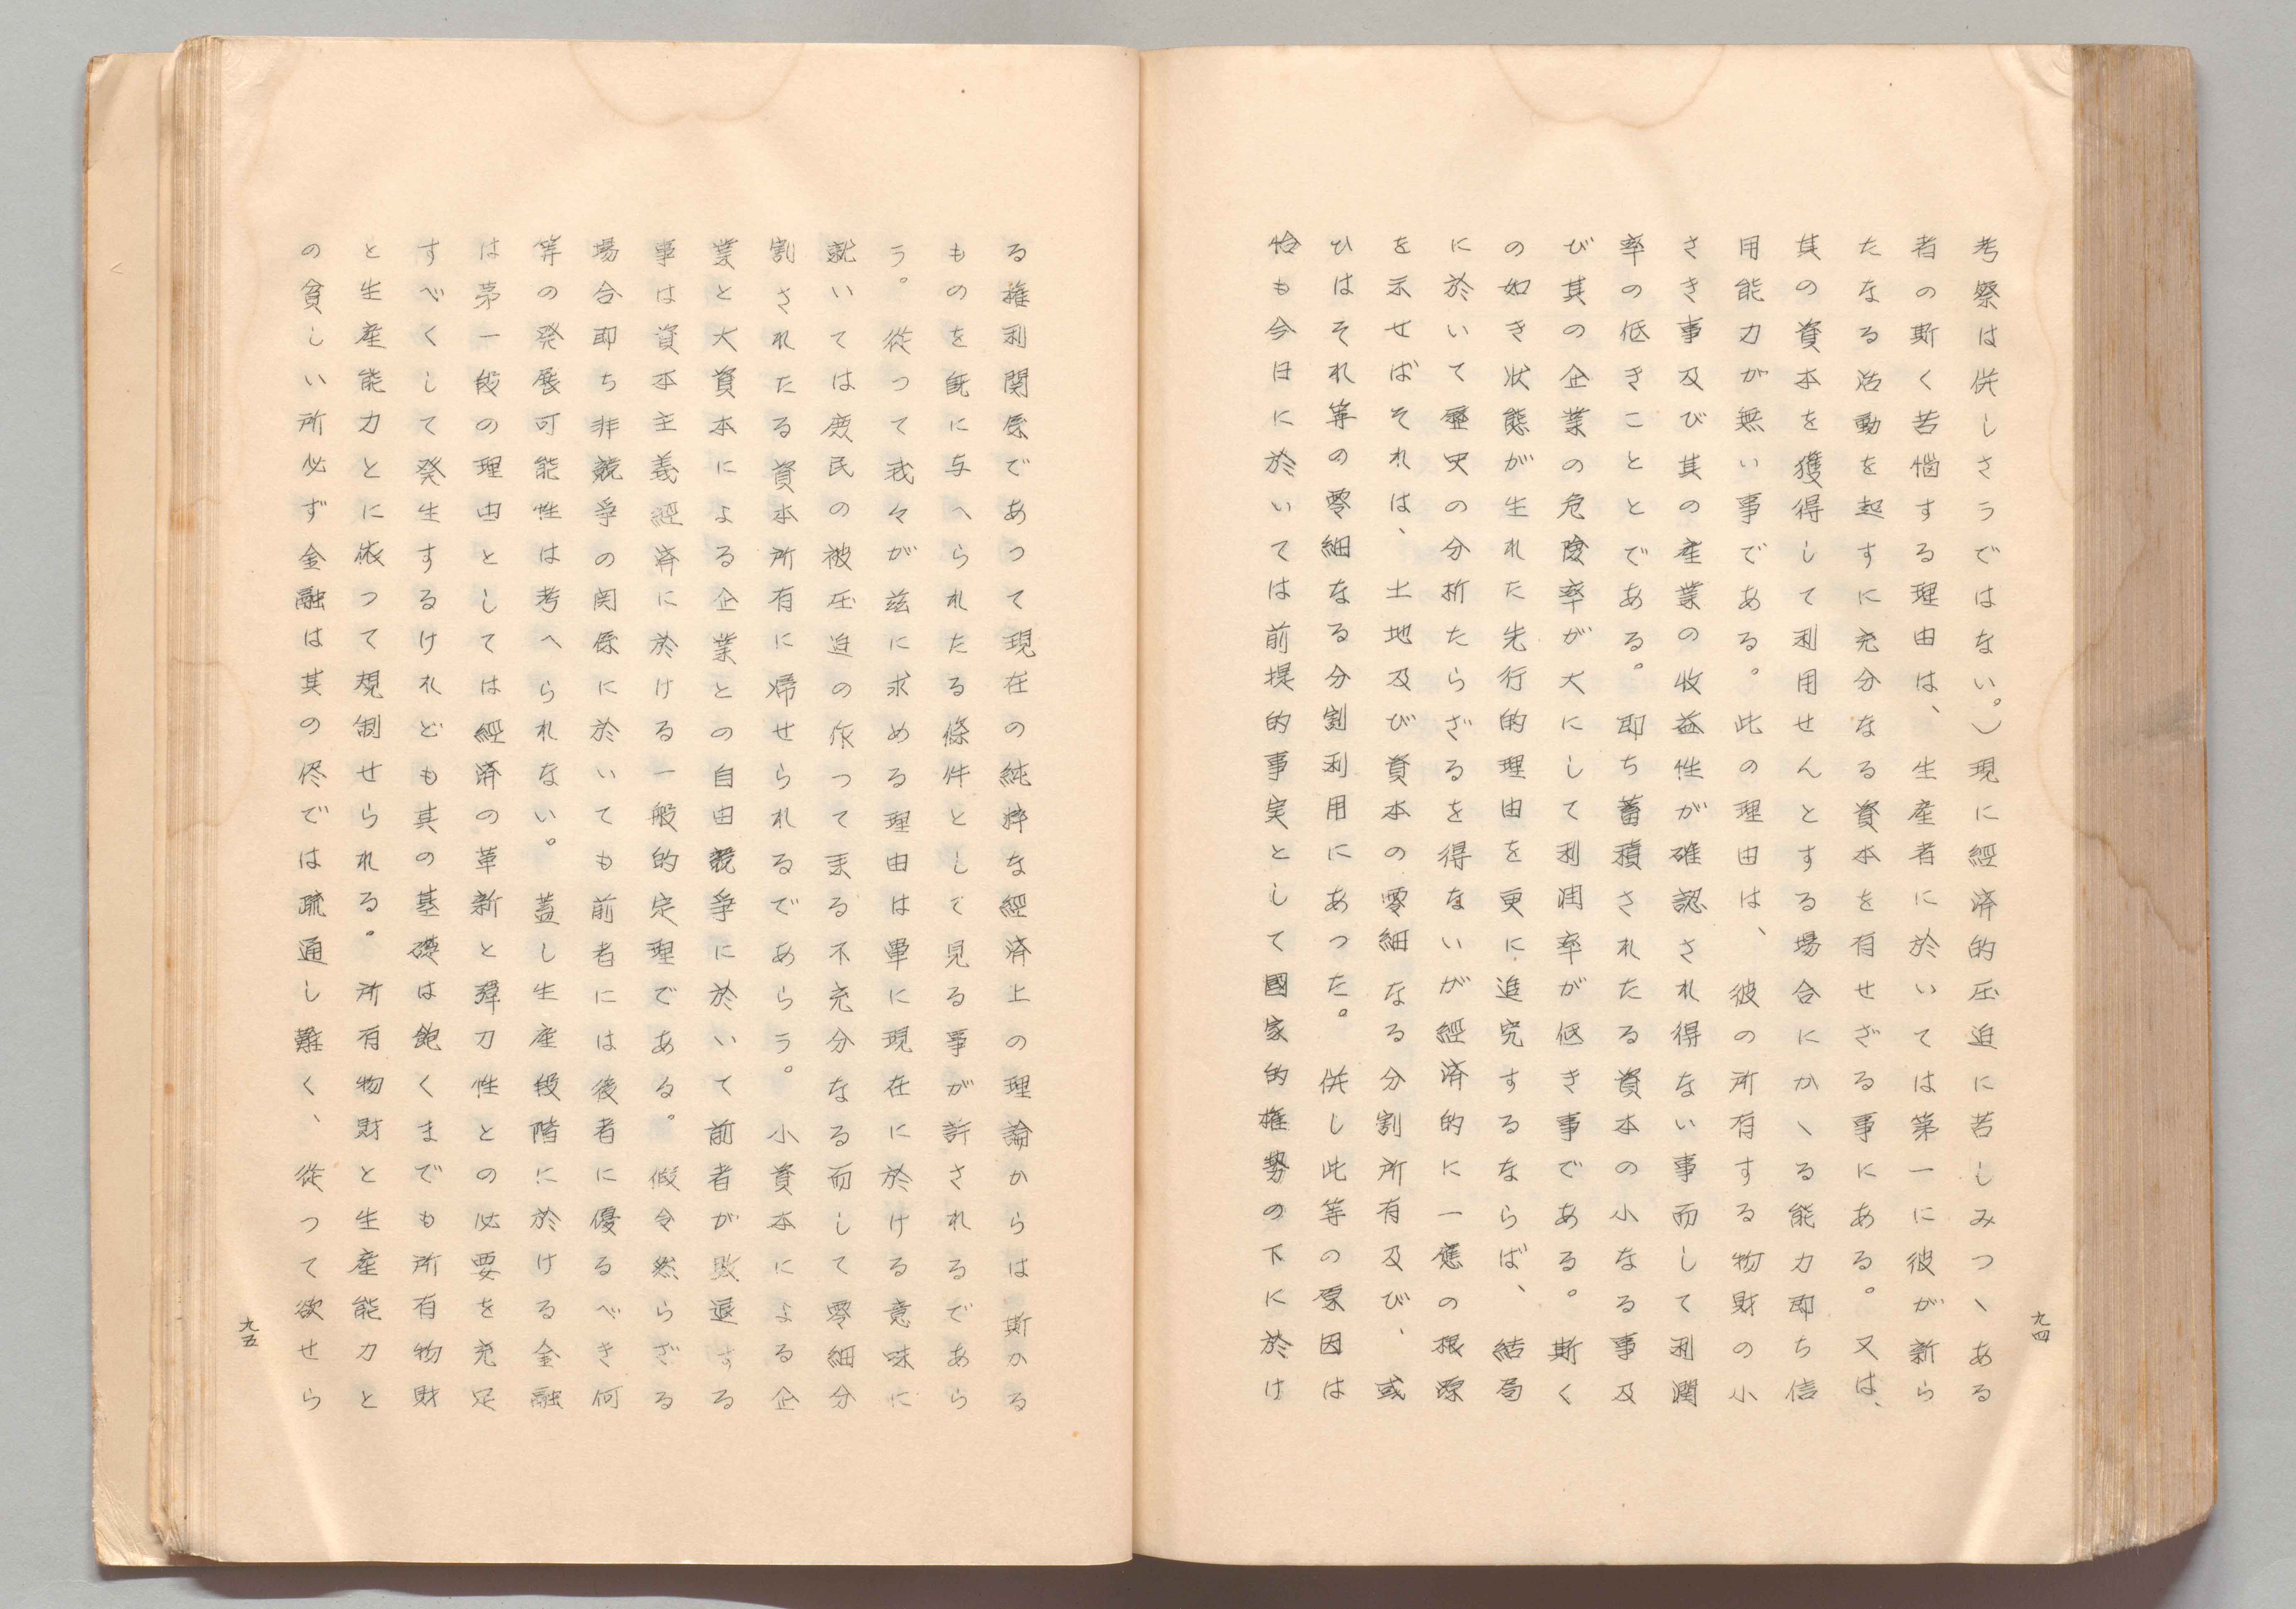 考察は併しさうではない。）現に經済的圧迫に苦しみつヽある
者の斯く苦悩する理由は、生産者に於いては第一に彼が新ら
たなる活動を起すに充分なる資本を有せざる事にある。又は、
其の資本を獲得して利用せんとする場合にかヽる能力即ち信
用能力が無い事である。此の理由は、彼の所有する物財の小
さき事及び其の産業の收益性が確認され得ない事而して利潤
率の低きことである。即ち蓄積されたる資本の小なる事及
び其の企業の危険率が大にして利潤率が低き事である。斯く
の如き状態が生れた先行的理由を更に進究するならば、結局
に於いて歴史の分析たらざるを得ないが經済的に一應の根源
を示せばそれは、土地及び資本の零細なる分割所有及び、或
ひはそれ等の零細なる分割利用にあつた。併し此等の原因は
恰も今日に於いては前提的事実として國家的権勢の下に於け
九四
る権利関係であつて現在の純粋な經済上の理論からは斯かる
ものを既に与へられたる條件として見る事が許されるであら
う。從つて我々が茲に求める理由は單に現在に於ける意味に
就いては農民の被圧迫の依つて来る不充分なる而して零細分
割されたる資本所有に帰せられるであらう。小資本による企
業と大資本による企業との自由競爭に於いて前者が敗退する
事は資本主義經済に於ける一般的定理である。假令然らざる
場合即ち非競爭の関係に於いても前者には後者に優るべき何
等の発展可能性は考へられない。蓋し生産段階に於ける金融
は第一段の理由としては經済の革新と弾力性との必要を充足
すべくして発生するけれども其の基礎は飽くまでも所有物財
と生産能力とに依つて規制せられる。所有物財と生産能力と
の貧しい所必ず金融は其の侭では疏通し難く、從つて欲せら
九五